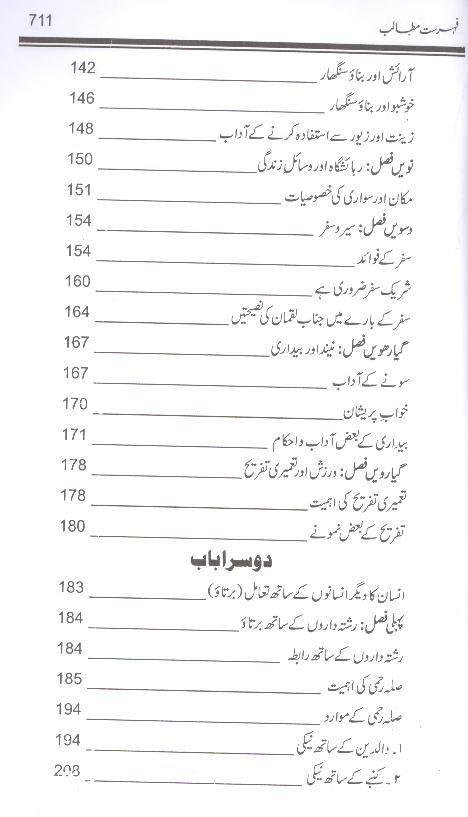 فہرست مطالب 711
آرائش اور بناؤ سنگھار 142
خوشبو اور بناؤ سنگھار 146
زینت اور زیور سے استفادہ کرنے کے آداب 148
نویں فصل: رہائشگاہ اور وسائل زندگی 150
مکان اور سواری کی خصوصیات 151
دسویں فصل: سیر و سفر 154
سفر کے فوائد 154
شریک سفر ضروری ہے 160
سفر کے بارے میں جناب لقمان کی نصیحتیں 164
گیارھویں فصل: نیند اور بیداری 167
سونے کے آداب 167
خواب پریشان 170
بیداری کے بعض آداب و احکام 171
گیارویں فصل: ورزش اور تعمیری تفریح 178
تعمیری تفریح کی اہمیت 178
تفریح کے بعض نمونے 180
دوسرا باب
انسان کا دیگر انسانوں کے ساتھ تعامل (برتاؤ) 183
پہلی فصل: رشتہ داروں کے ساتھ برتاؤ 184
رشتہ داروں کے ساتھ رابطہ 184
صلہ رحمی کی اہمیت 185
صلہ رحمی کے موارد 194
۱۔ والدین کے ساتھ نیکی 194
۲۔ کنبے کے ساتھ نیکی 208